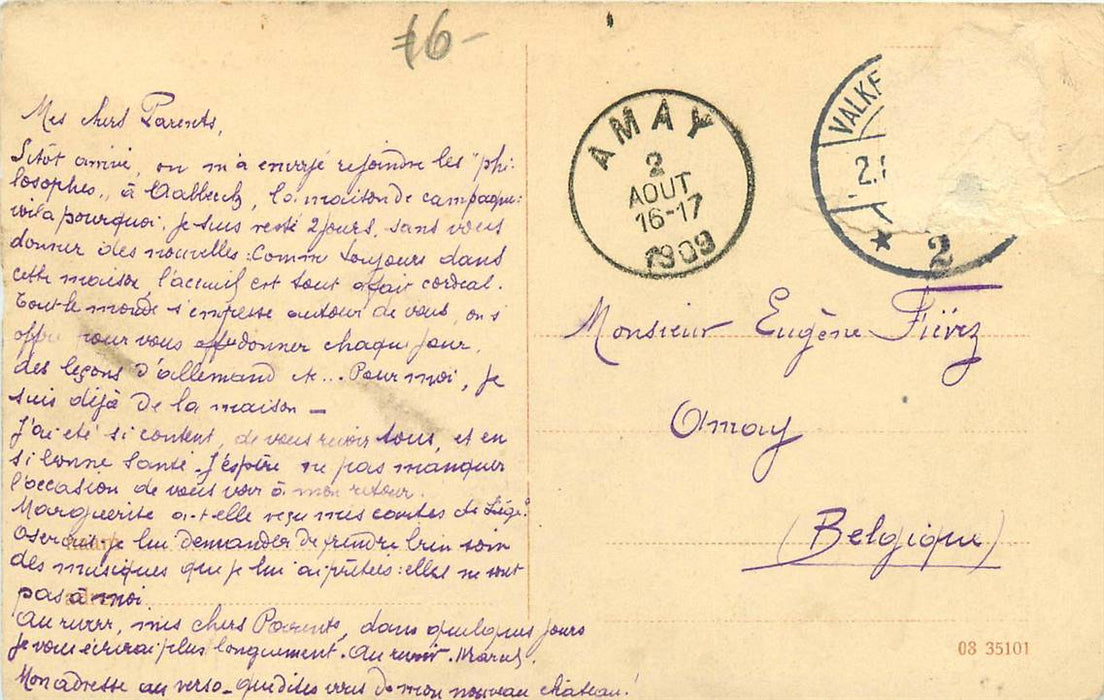 16-
Mes chers Parents,
Sitôt arrivé, on m'a envoyé rejoindre les "phi-
losophes" à Aalbeek, la maison de campagne:
voilà pourquoi je suis resté 2 jours, sans vous
donner des nouvelles. Comme toujours dans
cette maison, l'accueil est tout afait cordial.
Tout le monde s'empresse autour de vous, on s
offre pour vous donner chaque jour,
des leçons d'allemand etc... Pour moi, je
suis déjà de la maison —
J'ai été si content, de vous revoir tous, et en
si bonne santé. J'espère ne pas manquer
l'occasion de vous voir à mon retour.
Marguerite a-t-elle reçu mes cartes de Liége?
Oserais-je lui demander de prendre bien soin
des musiques que je lui ai prêtées: elles ne sont
pas à moi.
Au revoir, mes chers Parents, dans quelques jours
je vous écrirai plus longuement. Au revoir. Marcel.
Mon adresse au verso - que dites vous de mon nouveau château!
AMAY
2
AOUT
16-17
1909
VALKE
2.
2
Monsieur Eugène Fiévez
Amay
(Belgique)
08 35101